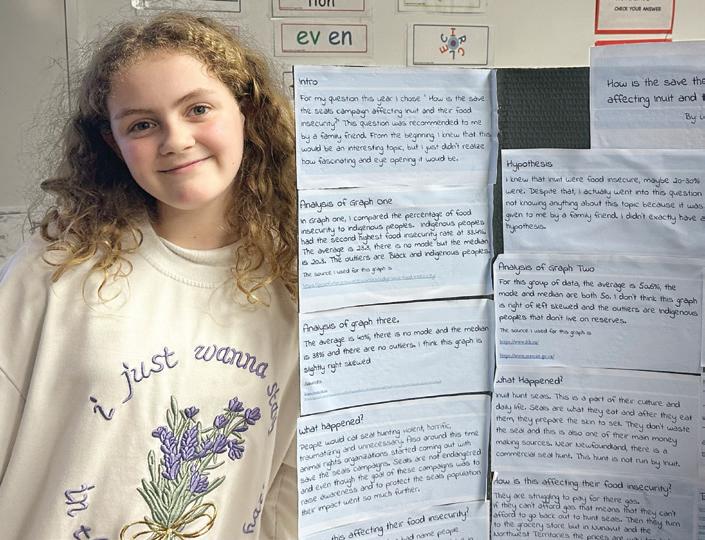 ev en
CHECK YOUR ANSWER
i just wanna stay
Intro
For my question this year I chose " How is the save
the seals campaign affecting inuit and their food
insecurity?" This question was recommended to me
by a family friend. From the beginning I knew that this
would be an interesting topic, but I just didn't realize
how fascinating and eye opening it would be.
Analysis of graph one
In graph one, I compared the percentage of food
insecurity to indigenous peoples. Indigenous peoples
had the second highest food insecurity rate at
The average is there is no mode but the median
is 20.3. The outliers are Black and indigenous peoples.
The source I used for this graph is
Analysis of graph three.
The average is 40%, there is no mode and the median
is 38% and there are no outliers. I think this graph is
slightly right skewed
What happened?
People would call seal hunting violent, horrific,
traumatizing and unnecessary. Also around this time
animal rights organizations started coming out with
save the seals campaigns. Seals are not endangered
and even though the goal of these campaigns was to
raise awareness and to protect the seals population
their impact went so much further.
this affecting their food insecurity?
had name people
How is the save the
affecting inuit and
By
Hypothesis
I knew that inuit were food insecure, maybe 20-30%
were. Despite that, I actually went into this question
not knowing anything about this topic because it was
given to me by a family friend. I didn't exactly have a
hypothesis.
Analysis of Graph Two
For this group of data, the average is 50.6%, the
mode and median are both 50. I don't think this graph
is right of left skewed and the outliers are indigenous
peoples that don't live on reserves.
The source I used for this graph is
What Happened?
Inuit hunt seals. This is a part of their culture and
daily life. Seals are what they eat and after they eat
them, they prepare the skin to sell. They don't waste
the seal and this is also one of their main money
making sources. Near Newfoundland, there is a
commercial seal hunt. This hunt is not run by inuit.
How is this affecting their food insecurity?
They are struggling to pay for there gas.
If they can't afford gas that means that they can't
afford to go back out to hunt seals. Then they turn
to the grocery store but in Nunavut and the
Northwest Territories the prices are